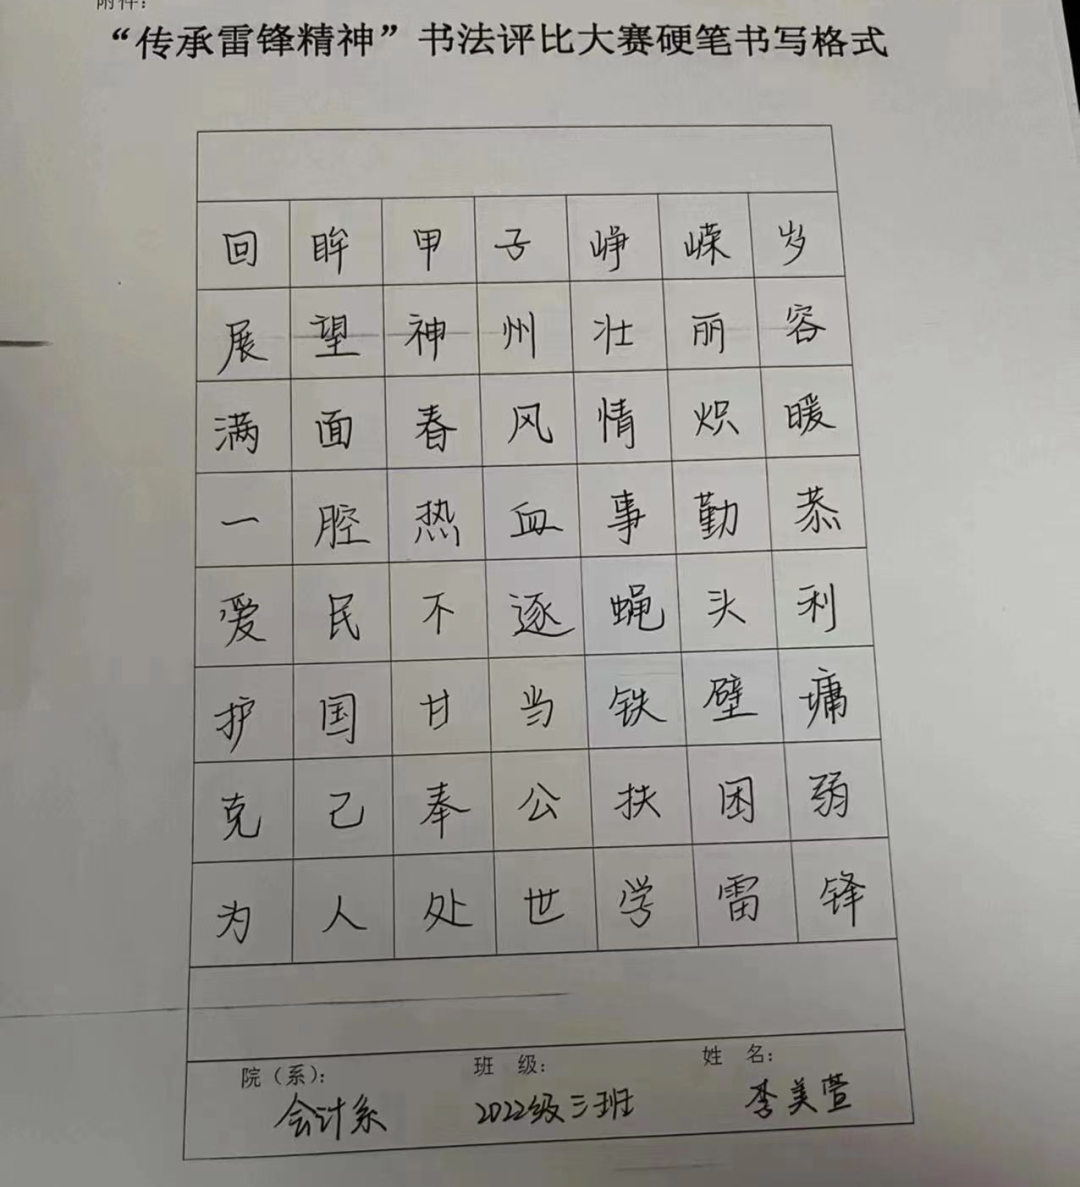 附件：
“传承雷锋精神”书法评比大赛硬笔书写格式
回眸甲子峥嵘岁
展望神州壮丽容
满面春风情炽暖
一腔热血事勤恭
爱民不逐蝇头利
护国甘当铁壁墉
克己奉公扶困弱
为人处世学雷锋
院（系）： 班 级： 姓 名：
会计系 2022级三班 李美萱